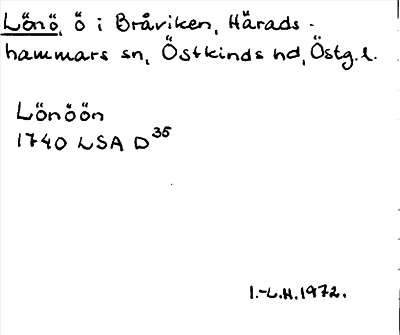 Lönö, ö i Bråviken, Härads-
hammars sn, Östkinds hd, Östg.l.
Lönöön
1740 LSA D35
I.-L.H.1972.